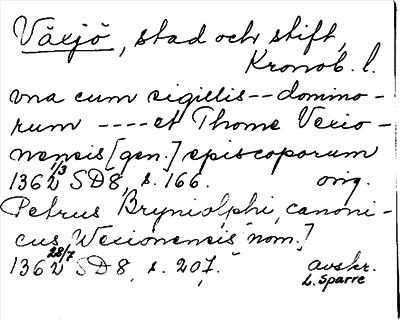 Växjö, stad och stift,
Kronob. l.
vna cum sigillis -- domino-
rum ---- et Thome Vexio-
nensis [gen.] episcoporum
1362 1/3 SD8, s. 166. orig.
Petrus Bryniolphi, canoni-
cus Wexionensis [nom.]
1362 28/7 SD8, s. 207. avskr.
L. Sparre